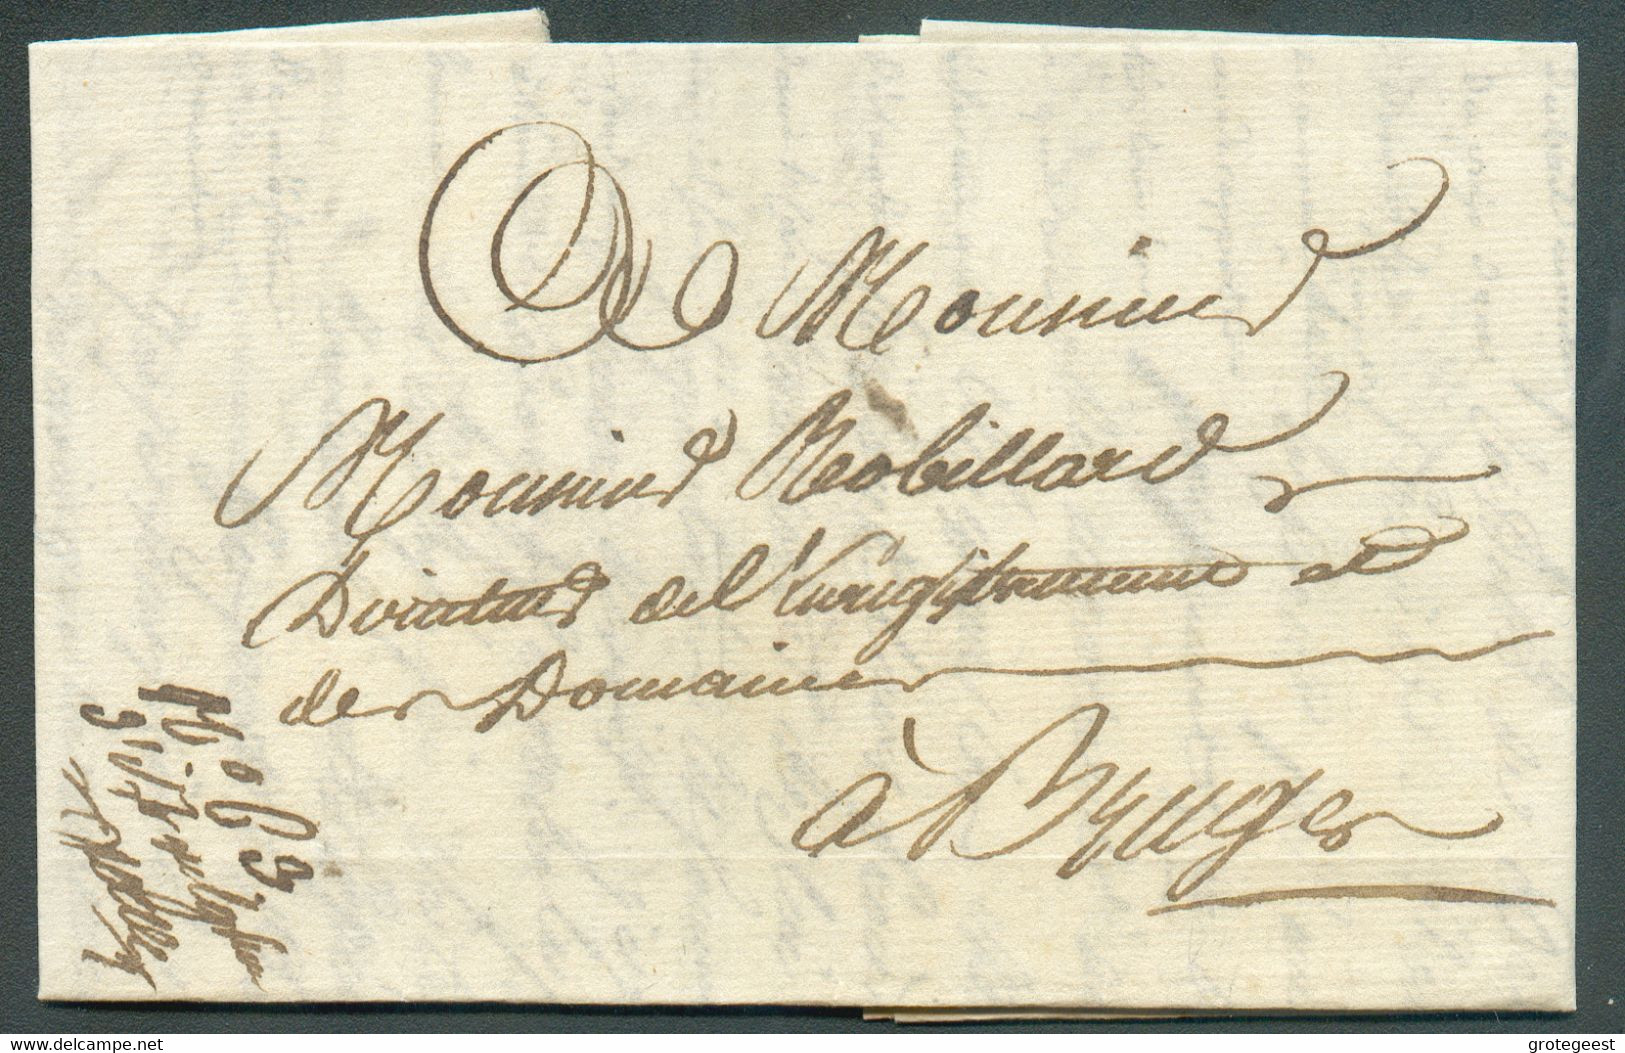 A Monsieur
Monsieur Robillard
Directeur de l'Enregistrement et
des Domaines
à Bruges
N° 63
delcampe.net
grotegeest